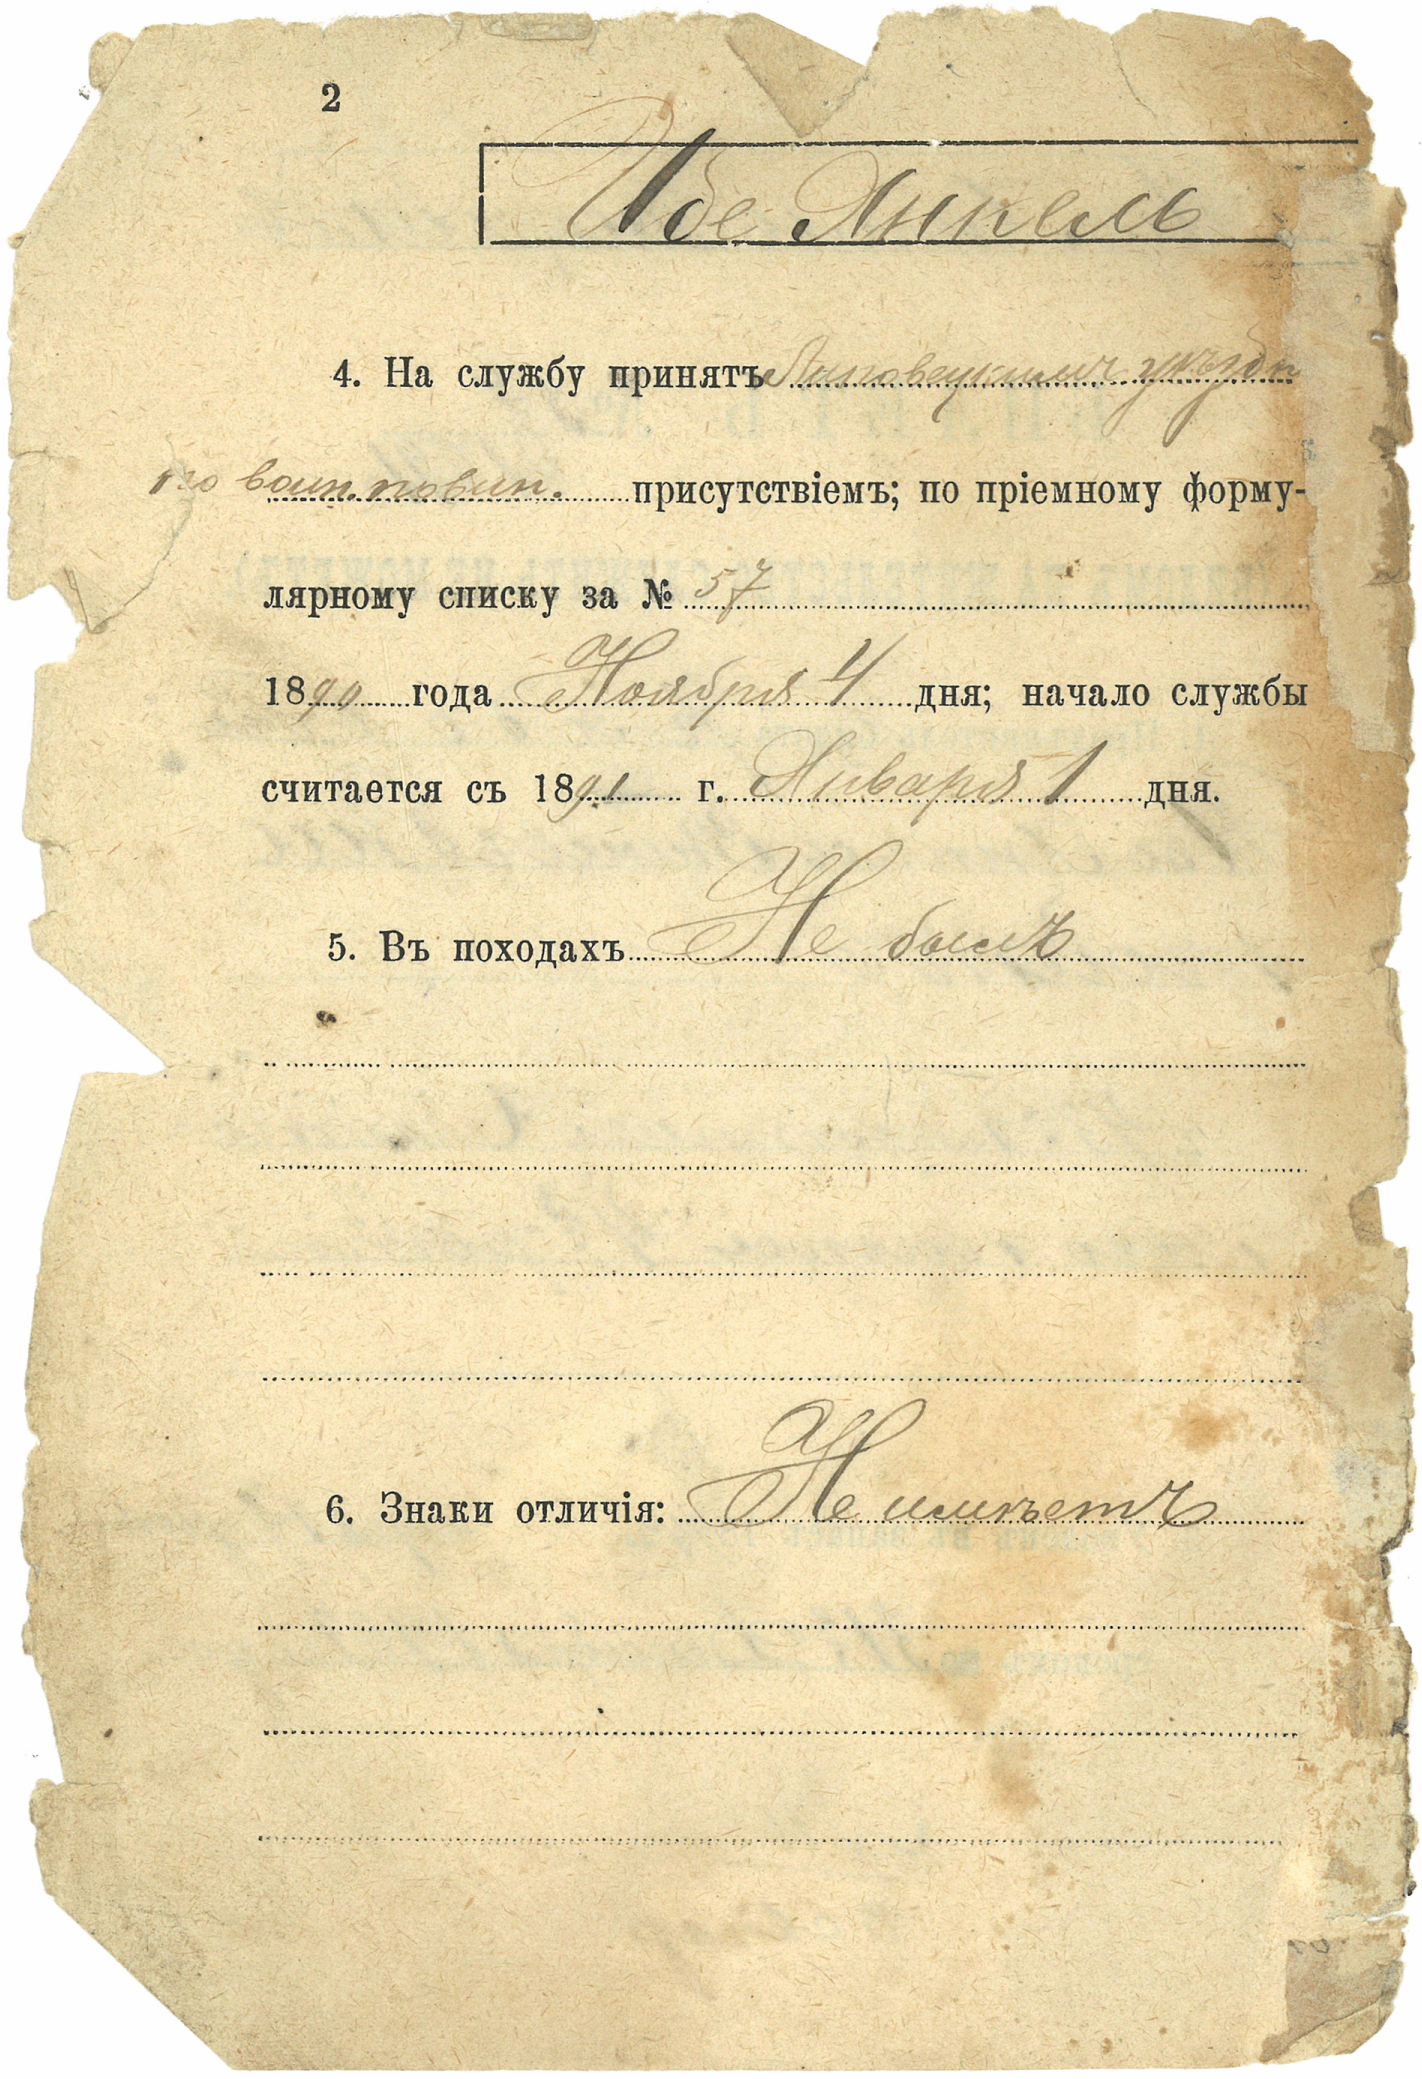 2
Абе Янкель
4. На службу принятъ Липовецкимъ уѣздн
по воин. повин. присутствіемъ; по пріемному форму-
лярному списку за № 57
1890 года Ноября 4 дня; начало службы
считается съ 1891 г. Января 1 дня.
5. Въ походахъ Не былъ
6. Знаки отличія: Не имѣетъ